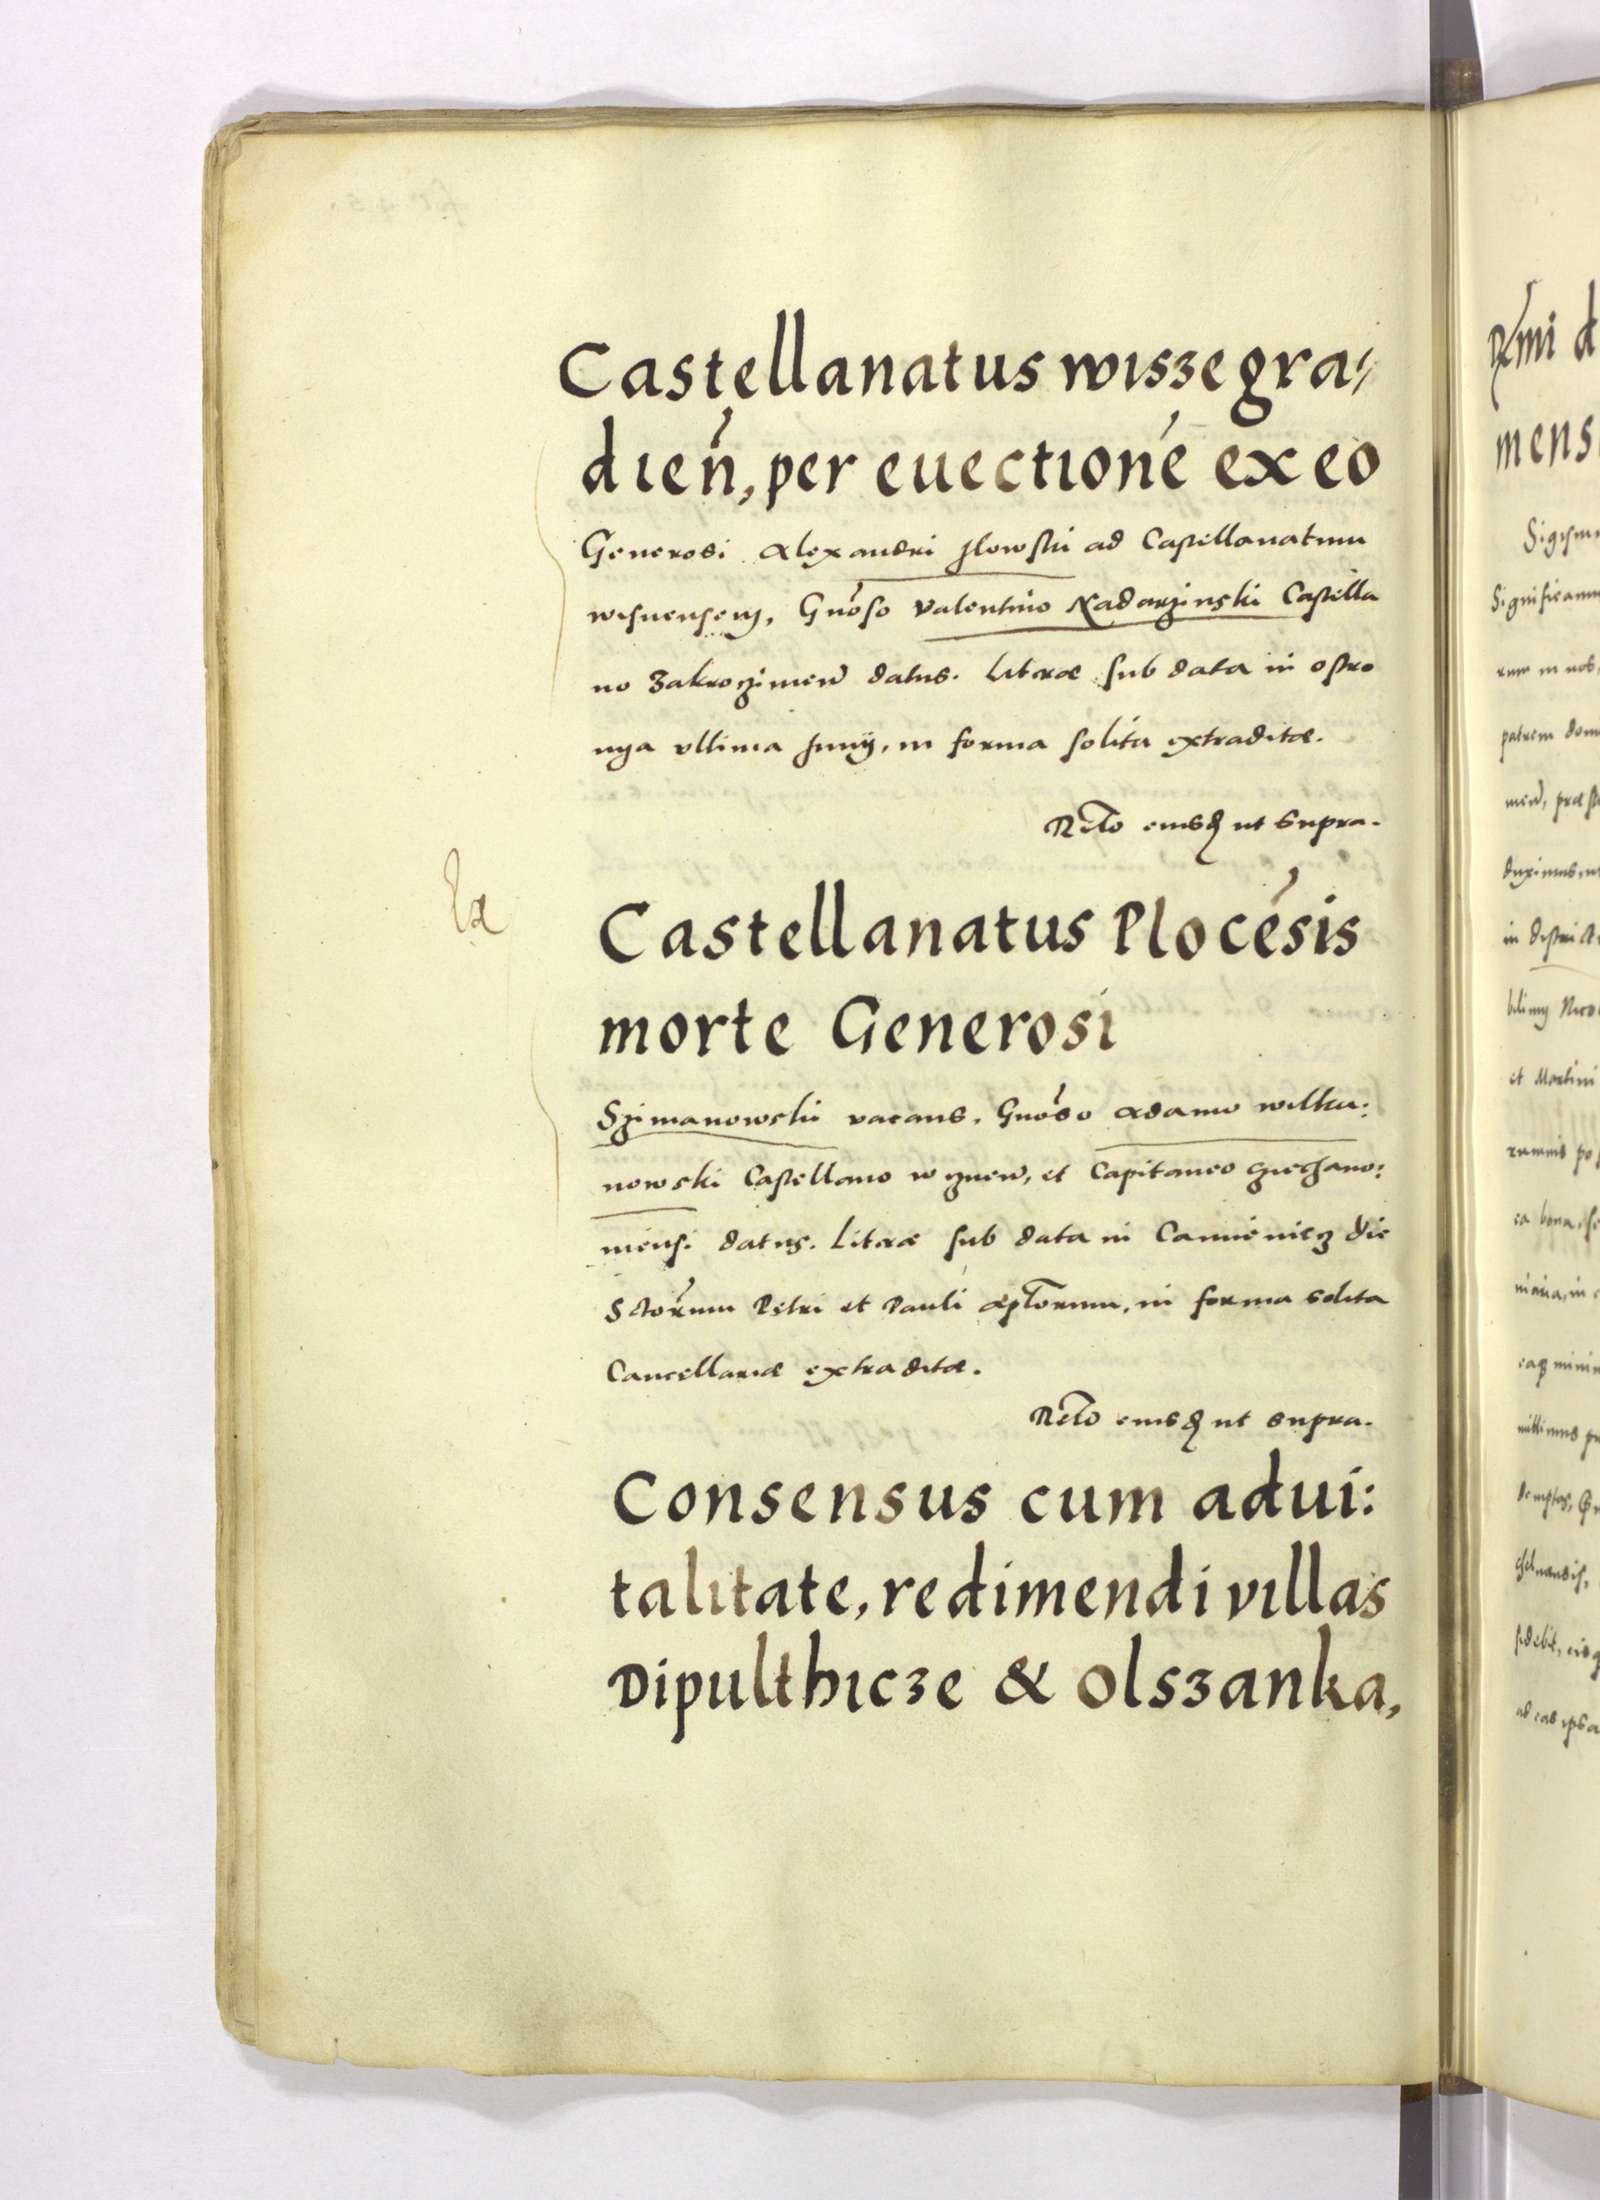 Castellanatus wiszegra⸗
dień, per euectioné ex eo
Generosi Alexandri Ilowski ad Castellanatum
wisnensem, Gnóso Valentino Nadarzinski Castella
no Zakrozimen datus. Literæ sub data in ostro
nya vltima Junij, in forma solita extraditæ.
Relo eiusdem ut supra.
Castellanatus Plocésis
morte Generosi
Szimanowski vacans. Gnóso Adamo wilka:
nowski Castellano wyznen, et Capitaneo cziechano:
miensi datus. Literæ sub data in Camieniecz die
Sctorum Petri et Pauli aplorum, in forma solita
Cancellariæ extraditæ.
Relo eiusdem ut supra.
Consensus cum adui:
talitate, redimendi villas
Dipulthicze & Olszanka,
Rmi d
mens
Significamu
rum in nos
patrem dom
men, præst
duximus, ut
in district
et Martini
ea bona, se